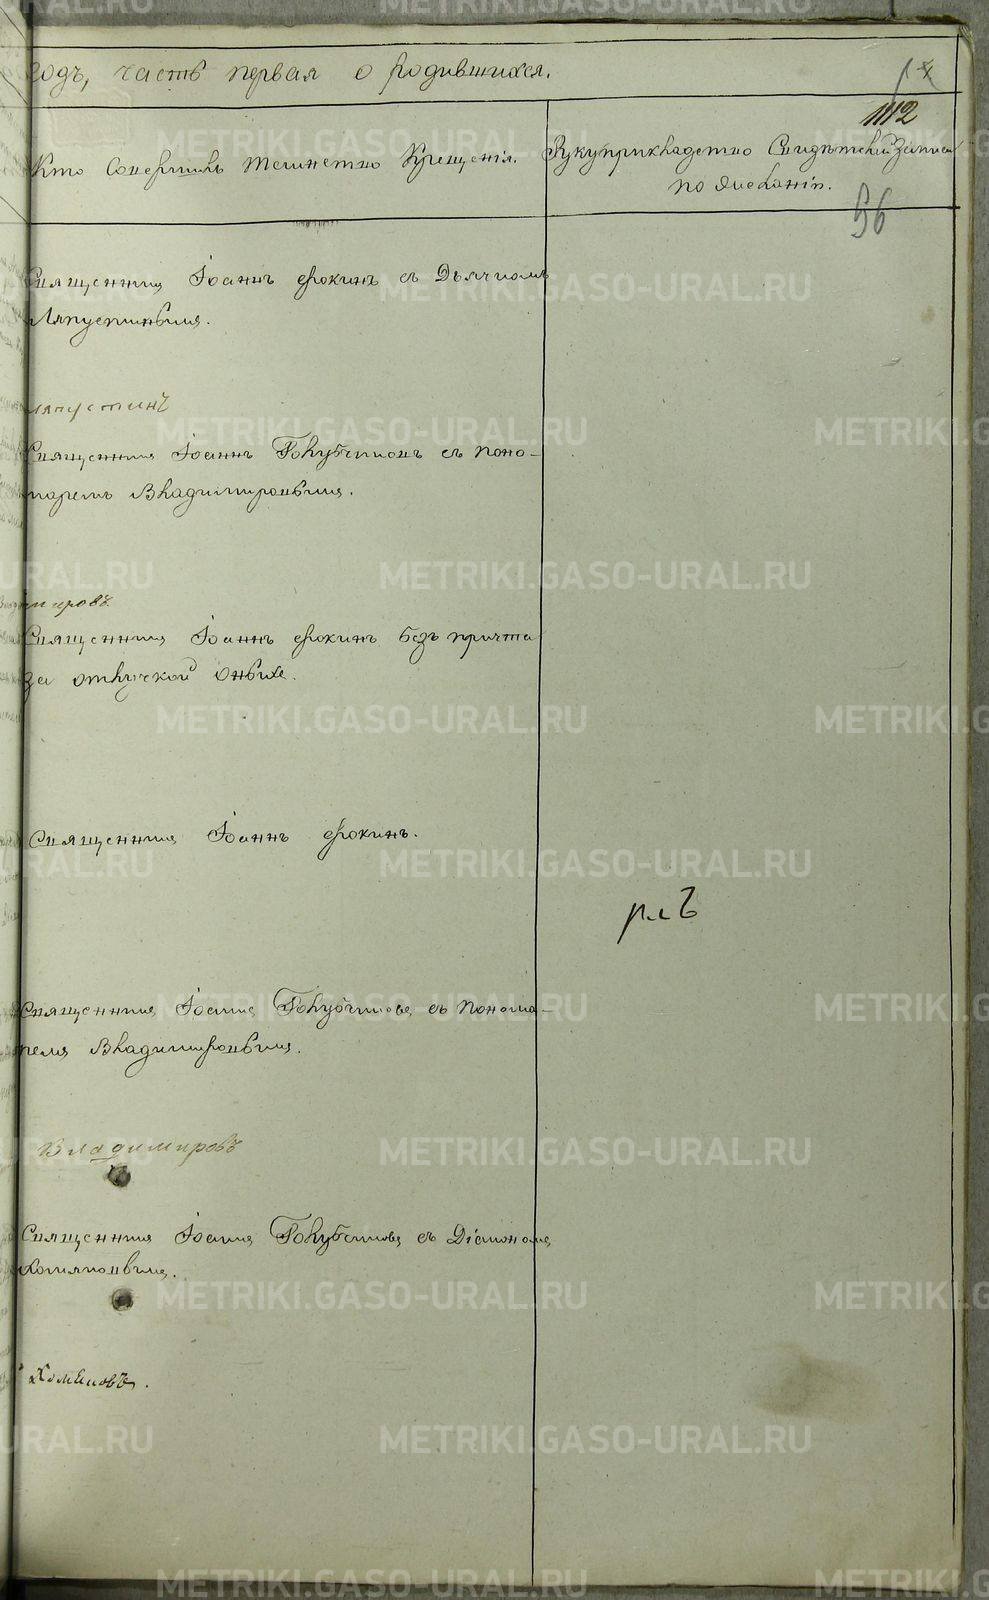 годъ, часть первая о родившихся.
112
Кто совершилъ таинство Крещенія.
Рукуприкладство Свидѣтелей Записи
по желанію.
56
Священникъ Іоаннъ Фокинъ съ Дьячкомъ
Ляпустинымъ.
Ляпустинъ
Священникъ Іоаннъ Голубчиковъ съ Поно-
маремъ Владимировымъ.
Владимировъ
Священникъ Іоаннъ Фокинъ безъ причта
за отлучкой оныхъ.
Священникъ Іоаннъ Фокинъ.
Священникъ Іоаннъ Голубчиковъ съ Понома-
ремъ Владимировымъ.
Владимировъ
Священникъ Іоаннъ Голубчиковъ съ Діакономъ
Хомяковымъ.
Хомяковъ.
METRIKI.GASO-URAL.RU